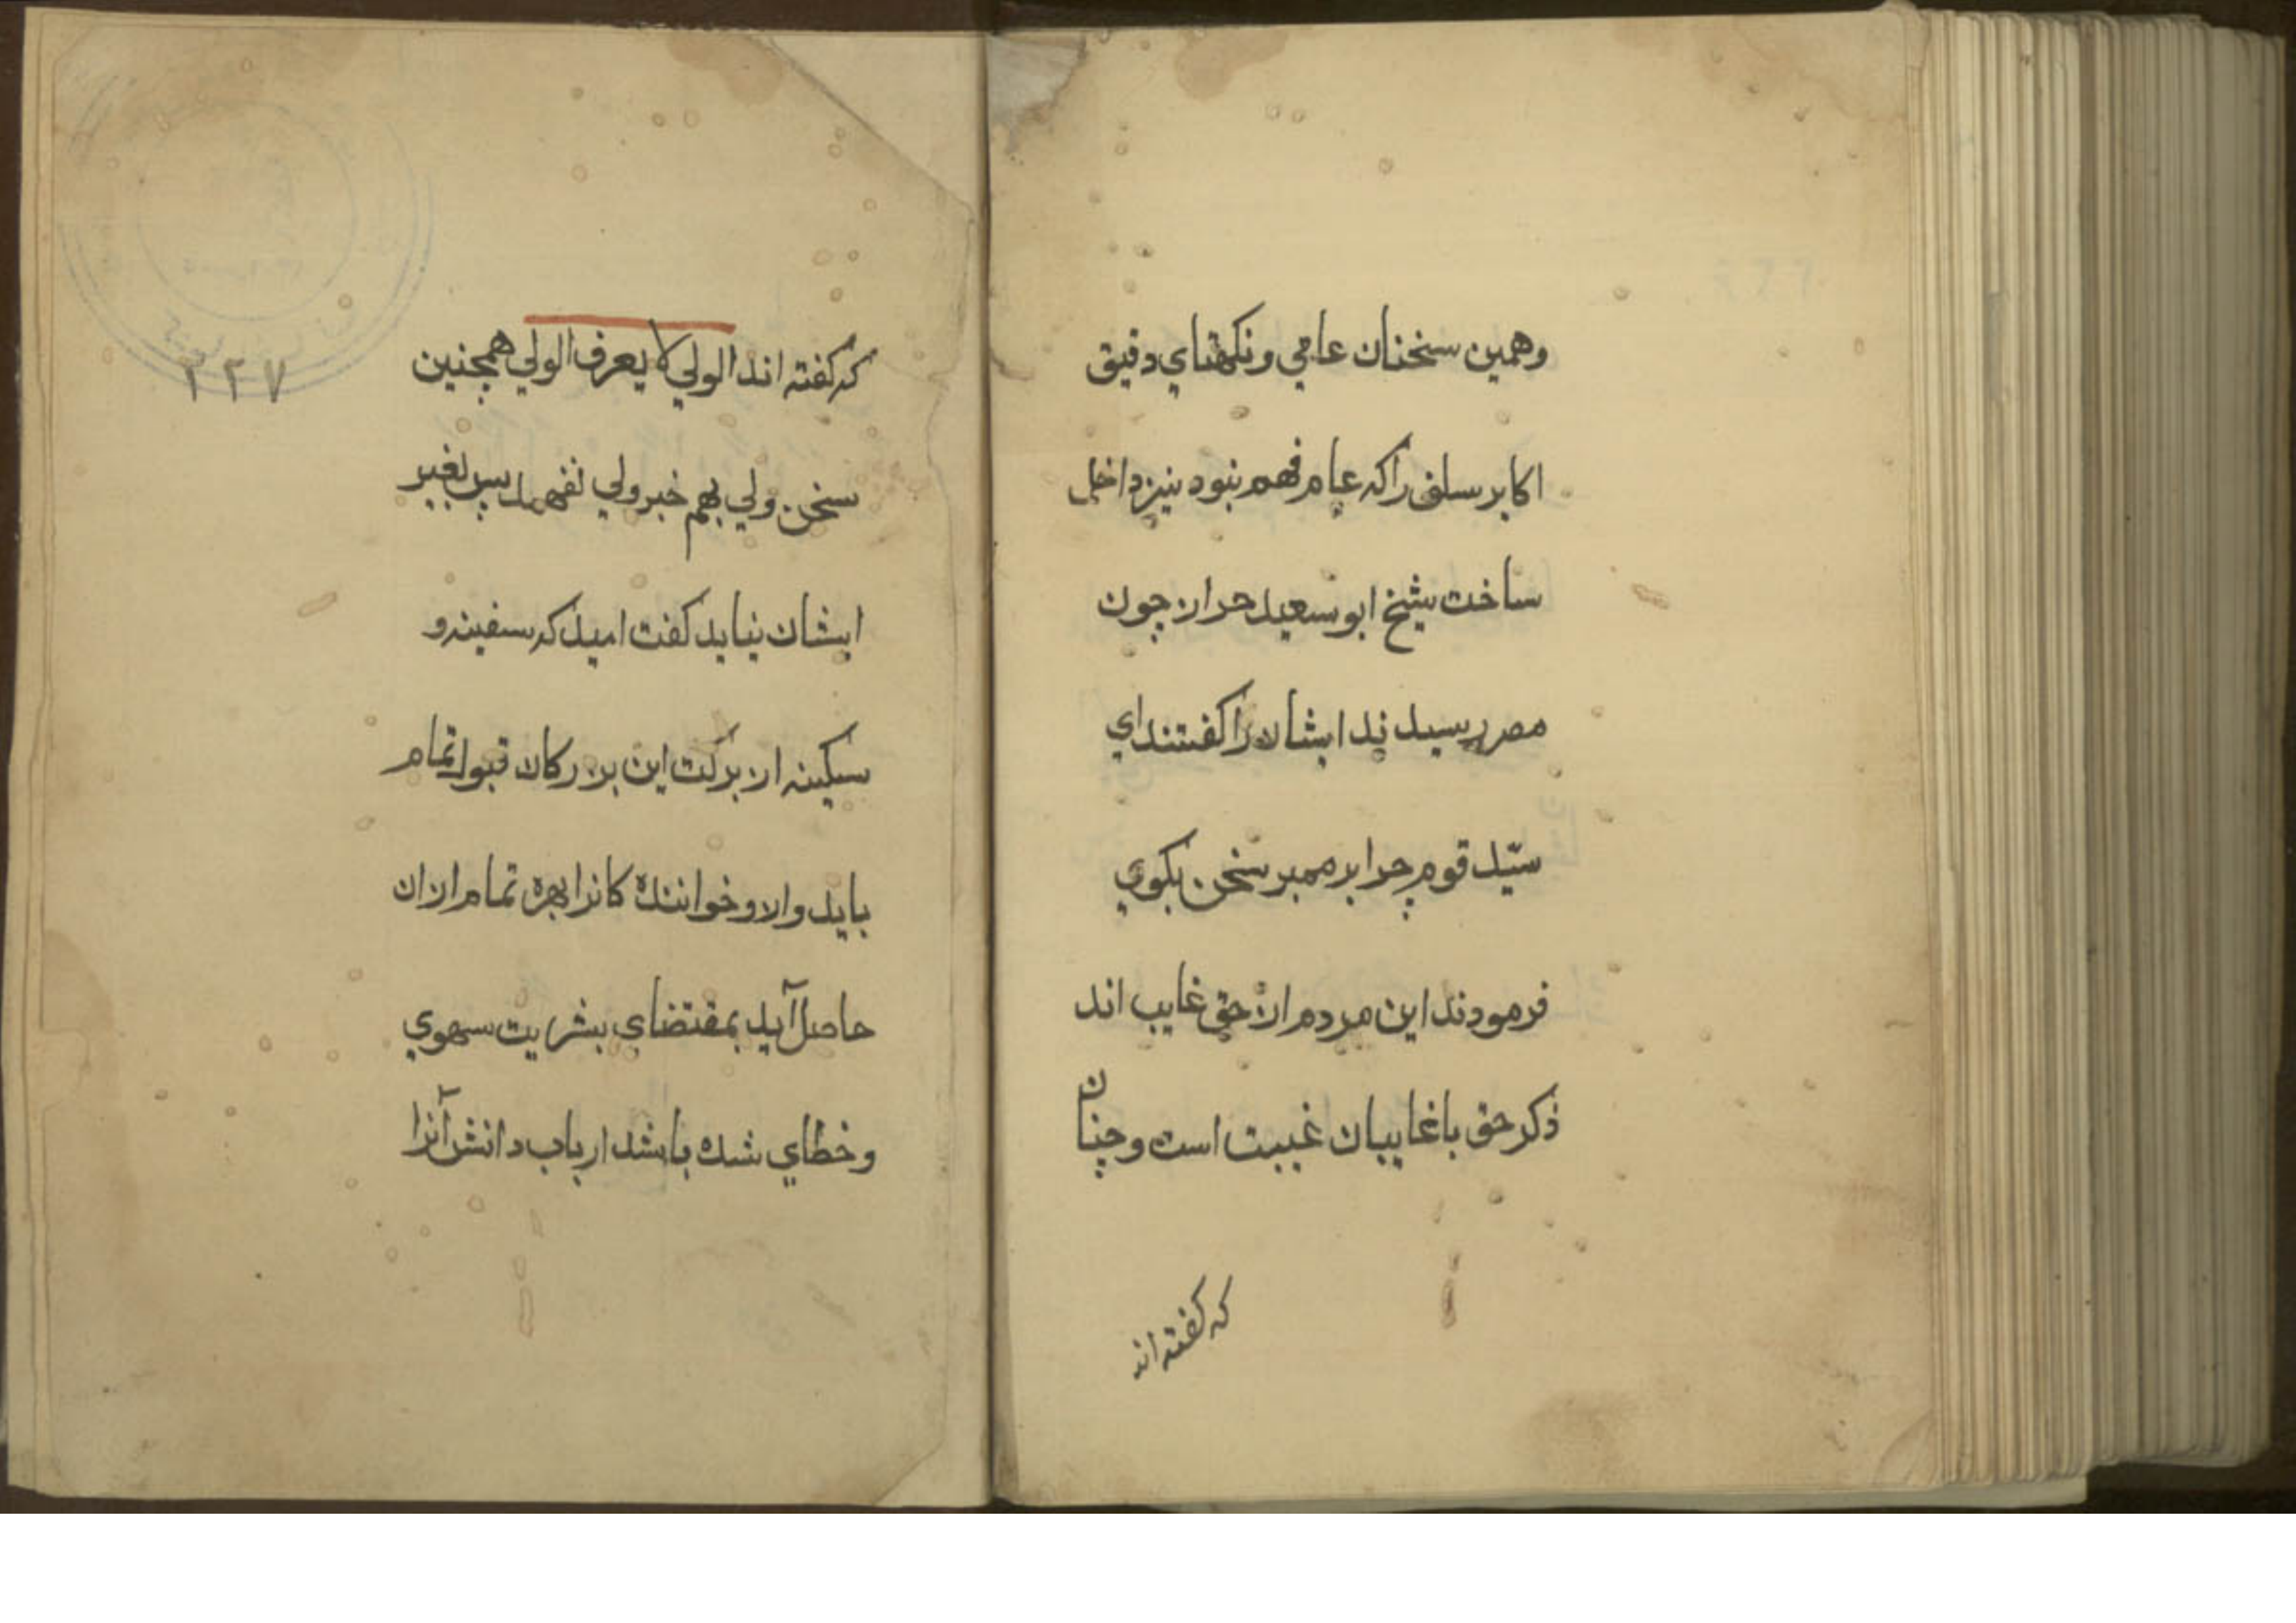 وهمين سخنان عامي ونكهتاي دقيق
اكابر سلف راكه عام فهم نبود نيز داخل
ساخت شيخ ابو سعيد حراز چون
مصر رسيدند ايشان را كفتند اي
سيّد قوم چرا بر ممبر سخن بكوي
فرمودند اين مردم از حق غايب اند
ذكر حق با غايبان غيبت است وچنان
كه كفته اند
كه كفته اند الولي لا يعرف الولي همچنين
سخن ولي بهم خبر ولي نفهمد پس بغير
ايشان نبايد كفت اميد كه سفينه و
سكينه از بركت اين بزركان قبول تمام
بايد والا وخواننده كانرا بهره تمام ازان
حاصل آيد بمقتضاي بشريت سهوي
وخطاي شده باشد ارباب دانش آنرا
٢٢٧